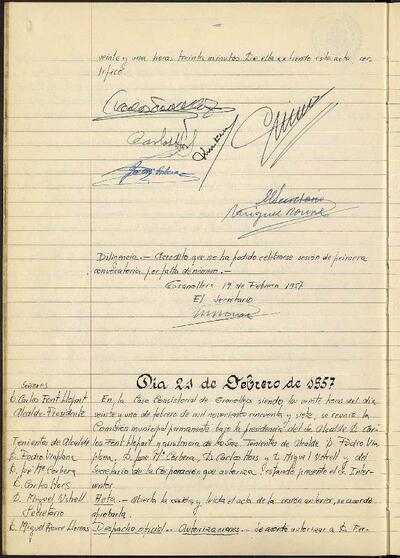 veinte y una horas treinta minutos. De ella extiendo esta acta, cer-
tifico.
El Secretario
Diligencia.- Acredito que no ha podido celebrarse sesión de primera
convocatoria por falta de número.-
Granollers 19 de Febrero 1957
El Secretario
Señores
Día 21 de Febrero de 1957
D. Carlos Font Llopart
Alcalde-Presidente
Tenientes de Alcalde
D. Pedro Viaplana
D. José Mª Corbera
D. Carlos Hors
D. Miguel Vetrell
Secretario
D. Miguel Llorens
En la Casa Consistorial de Granollers siendo las veinte horas del día
veinte y uno de febrero de mil novecientos cincuenta y siete, se reunió la
Comisión municipal permanente bajo la presidencia del Sr. Alcalde D. Car-
los Font Llopart y asistencia de los Sres. Tenientes de Alcalde D. Pedro Via-
plana, D. José Mª Corbera, D. Carlos Hors y D. Miguel Vetrell y del
Secretario de la Corporación que autoriza, estando presente el Sr. Inter-
ventor.
Acta.- Abierta la sesión y leída el acta de la sesión anterior, se acordó
aprobarla.
Despacho oficial.- Autorizaciones.- Se acordó autorizar a D. Fran-